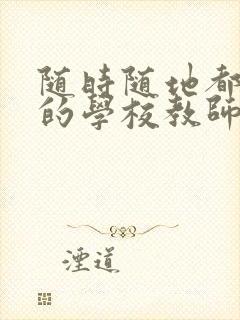 随時随地都
的學校教師
湮道